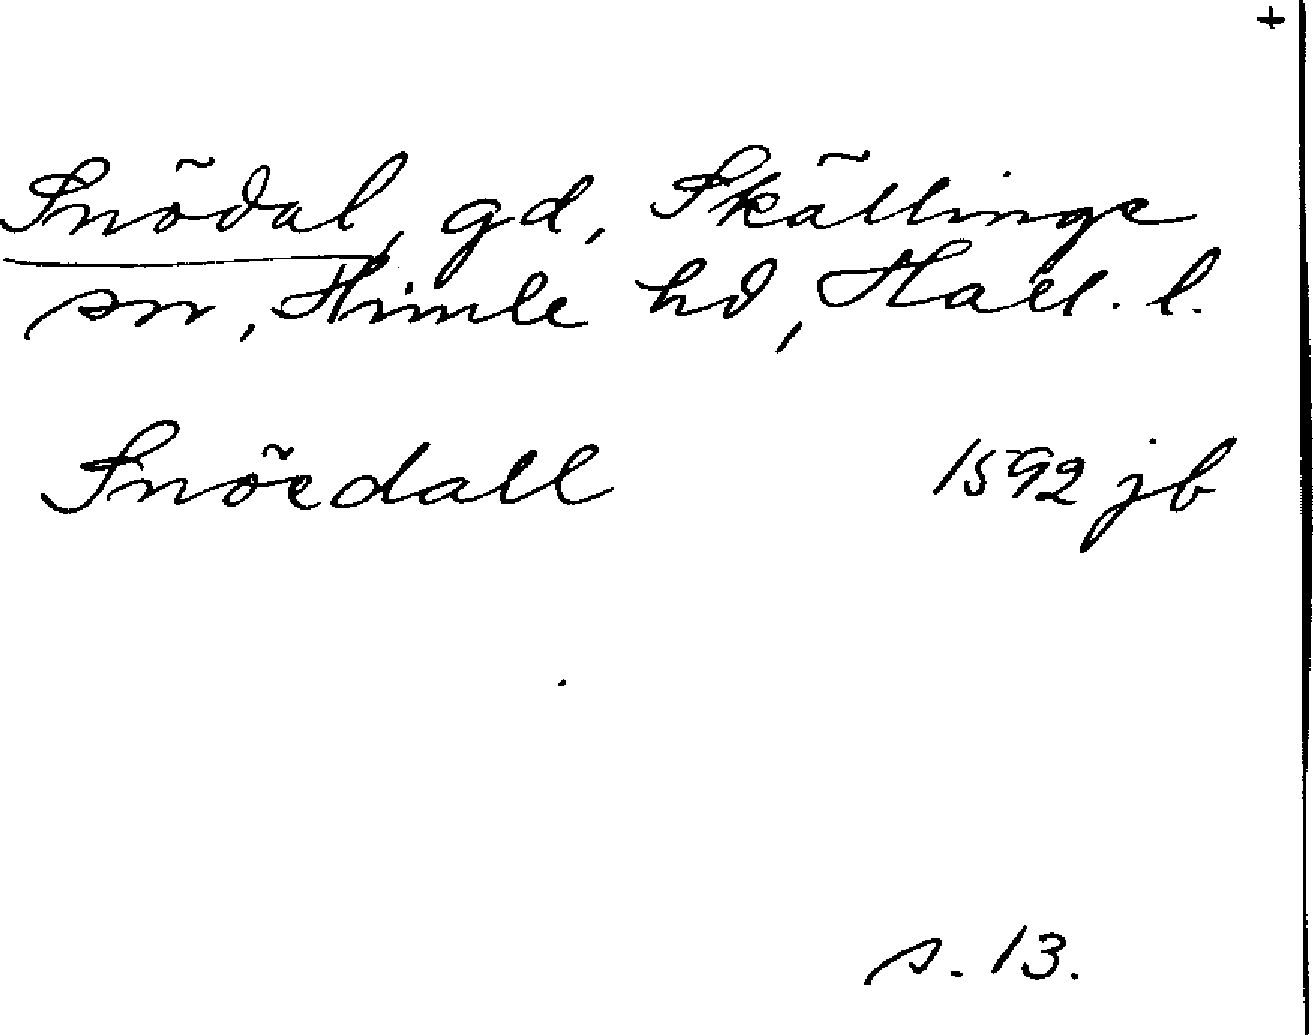 +
Snödal, gd, Skällinge
sn, Himle hd, Hall. l.
Snöedall 1592 jb
s. 13.